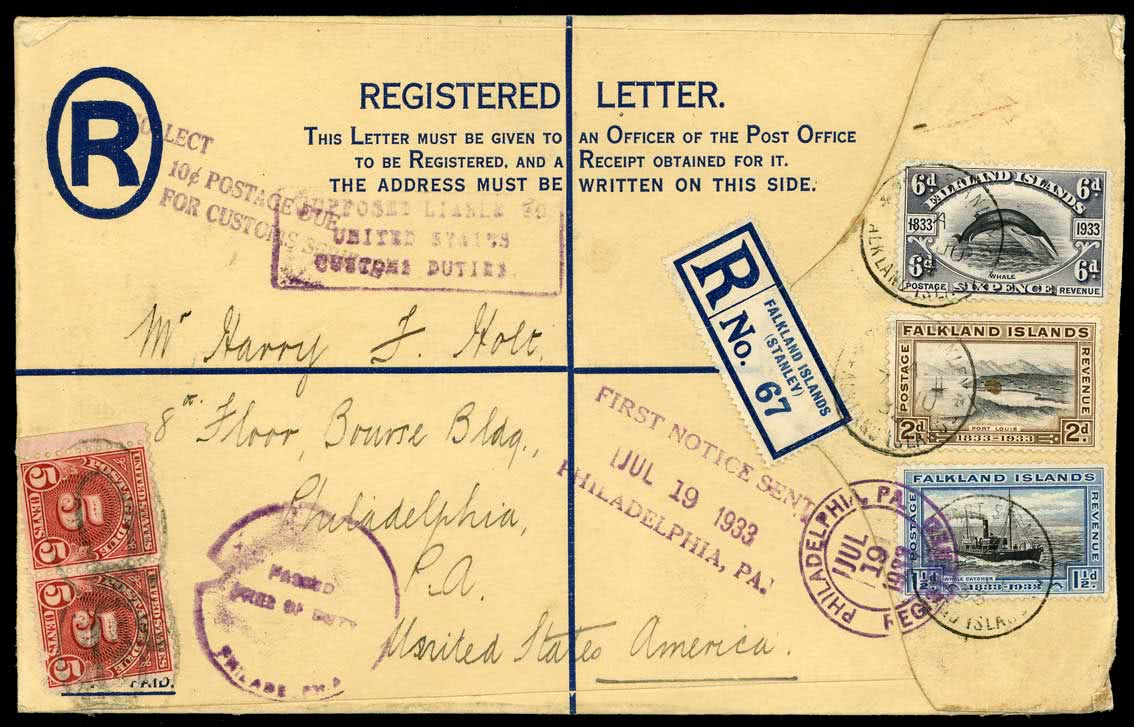 R
REGISTERED LETTER.
THIS LETTER MUST BE GIVEN TO AN OFFICER OF THE POST OFFICE
TO BE REGISTERED, AND A RECEIPT OBTAINED FOR IT.
THE ADDRESS MUST BE WRITTEN ON THIS SIDE.
COLLECT
10¢ POSTAGE DUE
FOR CUSTOMS
SUPPOSED LIABLE TO
UNITED STATES
CUSTOMS DUTIES.
Mr Harry F. Holt.
8th Floor, Bourse Bldg.,
Philadelphia,
P.A.
United States America.
R No. 67
FALKLAND ISLANDS
(STANLEY)
FIRST NOTICE SENT
JUL 19 1933
PHILADELPHIA, PA.
PHILADELPHIA, PA.
JUL
19
1933
REG
PASSED
FREE OF DUTY
PHILADE PA
6d FALKLAND ISLANDS 6d
1833 1933
6d WHALE 6d
POSTAGE SIXPENCE REVENUE
FALKLAND ISLANDS
POSTAGE REVENUE
PORT LOUIS
2d. 1833-1933 2d.
FALKLAND ISLANDS
POSTAGE REVENUE
WHALE CATCHER
1½d. 1833-1933 1½d.
FALKLAND ISLANDS
UNITED STATES
POSTAGE DUE
5
5 CENTS 5
UNITED STATES
POSTAGE DUE
5
5 CENTS 5
PAID.